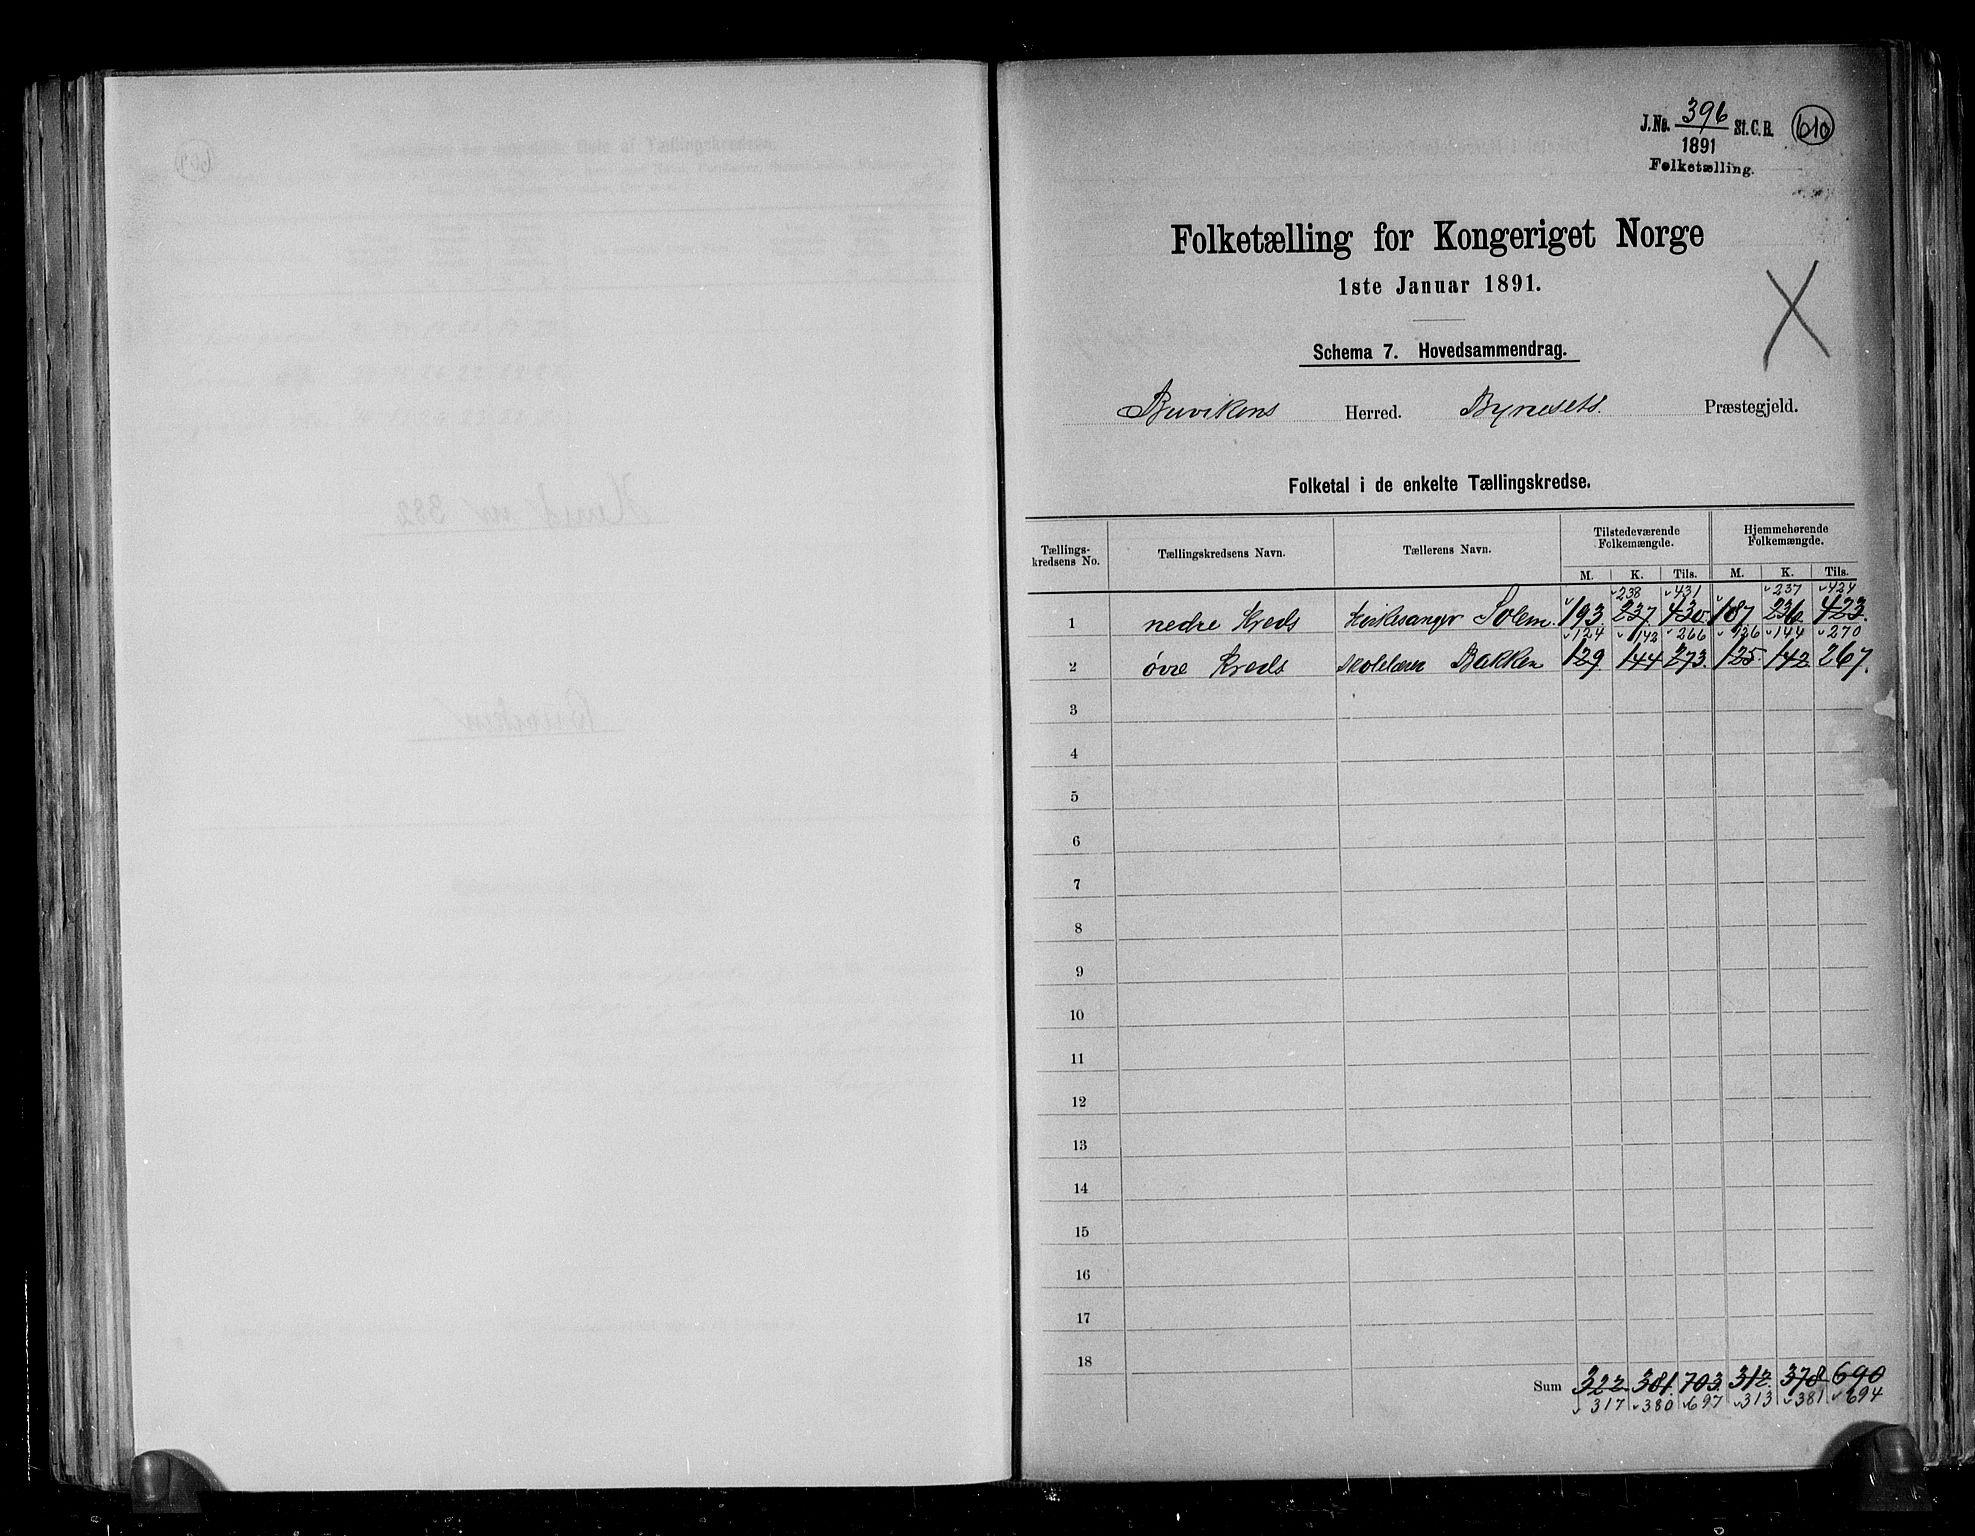 J.No. 396 St. C. B. 610
1891
Folketælling.
Folketælling for Kongeriget Norge
1ste Januar 1891.
Schema 7. Hovedsammendrag.
Buvikens Herred. Bynesets. Præstegjeld.
Folketal i de enkelte Tællingskredse.
Tællings-kredsens No. Tællingskredsens Navn. Tællerens Navn. Tilstedeværende Folkemængde. Hjemmehørende Folkemængde.
M. K. Tils. M. K. Tils.
238 431 237 424
1 nedre Kreds Kirkesanger Solem. 193. 237 430 187 236 423.
124 142 266 126 144 270
2 øvre Kreds Skolelærer Bakken 129. 144 273. 125. 142 267.
3
4
5
6
7
8
9
10
11
12
13
14
15
16
17
18
Sum 322 381. 703. 312. 378. 690
317 380 697 313 381 694
Herred nr 382
Buviken